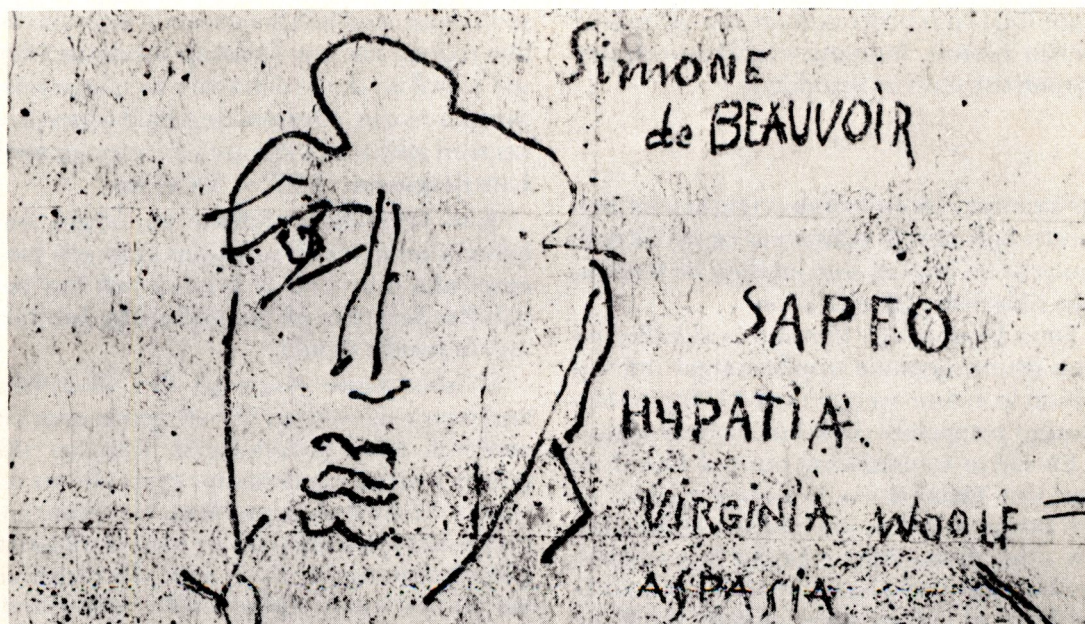 Simone
de BEAUVOIR
SAPFO
HYPATIA
VIRGINIA WOOLF =
ASPASIA